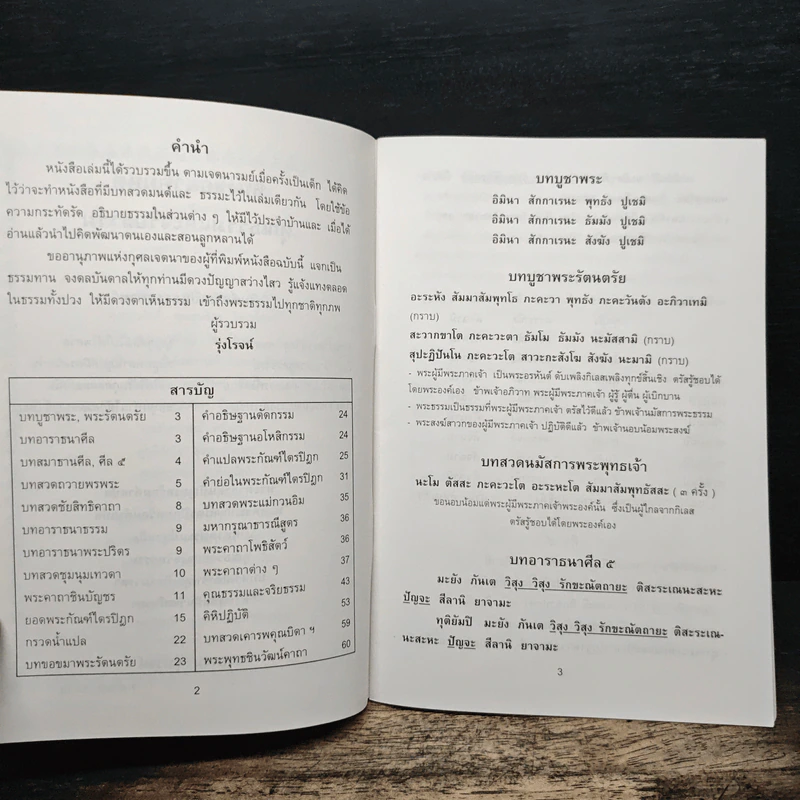 คำนำ
หนังสือเล่มนี้ได้รวบรวมขึ้น ตามเจตนารมย์เมื่อครั้งเป็นเด็ก ได้คิด
ไว้ว่าจะทำหนังสือที่มีบทสวดมนต์และ ธรรมะไว้ในเล่มเดียวกัน โดยใช้ข้อ
ความกระทัดรัด อธิบายธรรมในส่วนต่าง ๆ ให้มีไว้ประจำบ้านและ เมื่อได้
อ่านแล้วนำไปคิดพัฒนาตนเองและสอนลูกหลานได้
ขออานุภาพแห่งกุศลเจตนาของผู้ที่พิมพ์หนังสือฉบับนี้ แจกเป็น
ธรรมทาน จงดลบันดาลให้ทุกท่านมีดวงปัญญาสว่างไสว รู้แจ้งแทงตลอด
ในธรรมทั้งปวง ให้มีดวงตาเห็นธรรม เข้าถึงพระธรรมไปทุกชาติทุกภพ
ผู้รวบรวม
รุ่งโรจน์
สารบัญ
บทบูชาพระ, พระรัตนตรัย 3
บทอาราธนาศีล 3
บทสมาธานศีล, ศีล ๕ 4
บทสวดถวายพรพระ 5
บทสวดชัยสิทธิคาถา 8
บทอาราธนาธรรม 9
บทอาราธนาพระปริตร 9
บทสวดชุมนุมเทวดา 10
พระคาถาชินบัญชร 11
ยอดพระกัณฑ์ไตรปิฎก 15
กรวดน้ำแปล 22
บทขอขมาพระรัตนตรัย 23
คำอธิษฐานตัดกรรม 24
คำอธิษฐานอโหสิกรรม 24
คำแปลพระกัณฑ์ไตรปิฎก 25
คำย่อในพระกัณฑ์ไตรปิฎก 31
บทสวดพระแม่กวนอิม 35
มหากรุณาธารณีสูตร 36
พระคาถาโพธิสัตว์ 36
พระคาถาต่าง ๆ 37
คุณธรรมและจริยธรรม 43
คิหิปฏิบัติ 53
บทสวดเคารพคุณบิดา ฯ 59
พระพุทธชินวัฒน์คาถา 60
2
บทบูชาพระ
อิมินา สักกาเรนะ พุทธัง ปูเชมิ
อิมินา สักกาเรนะ ธัมมัง ปูเชมิ
อิมินา สักกาเรนะ สังฆัง ปูเชมิ
บทบูชาพระรัตนตรัย
อะระหัง สัมมาสัมพุทโธ ภะคะวา พุทธัง ภะคะวันตัง อะภิวาเทมิ
(กราบ)
สะวากขาโต ภะคะวะตา ธัมโม ธัมมัง นะมัสสามิ (กราบ)
สุปะฏิปันโน ภะคะวะโต สาวะกะสังโฆ สังฆัง นะมามิ (กราบ)
- พระผู้มีพระภาคเจ้า เป็นพระอรหันต์ ดับเพลิงกิเลสเพลิงทุกข์สิ้นเชิง ตรัสรู้ชอบได้
โดยพระองค์เอง ข้าพเจ้าอภิวาท พระผู้มีพระภาคเจ้า ผู้รู้ ผู้ตื่น ผู้เบิกบาน
- พระธรรมเป็นธรรมที่พระผู้มีพระภาคเจ้า ตรัสไว้ดีแล้ว ข้าพเจ้านมัสการพระธรรม
- พระสงฆ์สาวกของผู้มีพระภาคเจ้า ปฏิบัติดีแล้ว ข้าพเจ้านอบน้อมพระสงฆ์
บทสวดนมัสการพระพุทธเจ้า
นะโม ตัสสะ ภะคะวะโต อะระหะโต สัมมาสัมพุทธัสสะ ( ๓ ครั้ง )
ขอนอบน้อมแด่พระผู้มีพระภาคเจ้าพระองค์นั้น ซึ่งเป็นผู้ไกลจากกิเลส
ตรัสรู้ชอบได้โดยพระองค์เอง
บทอาราธนาศีล ๕
มะยัง ภันเต วิสุง วิสุง รักขะณัตถายะ ติสะระเณนะสะหะ
ปัญจะ สีลานิ ยาจามะ
ทุติยัมปิ มะยัง ภันเต วิสุง วิสุง รักขะณัตถายะ ติสะระเณ-
นะสะหะ ปัญจะ สีลานิ ยาจามะ
3